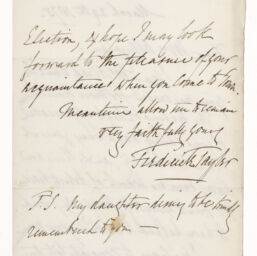 Election, & hope I may look
forward to the pleasure of your
acquaintance when you come to Town.
Meantime allow me to remain
very faithfully yours
Frederick Taylor
P.S. My daughter desires to be kindly
remembered to you —